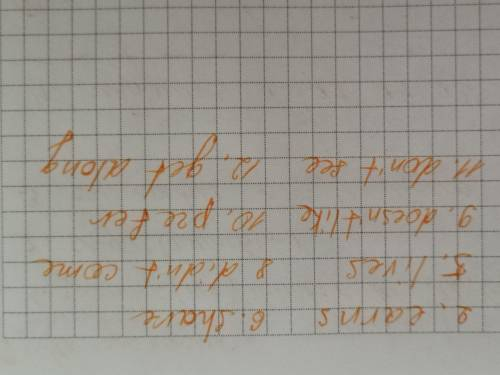 2. earns 6. share
5. lives 8 didn't come
9. doesn't like 10. prefer
11. don't see 12. get along